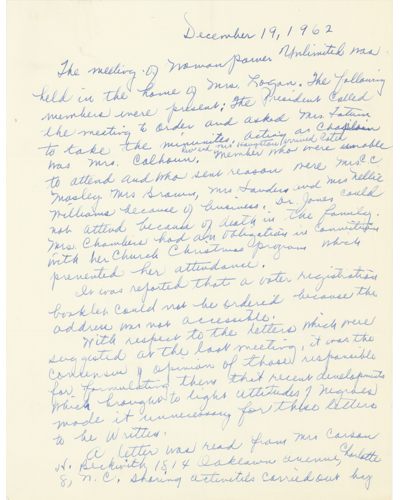 December 19, 1962
The meeting of Womanpower Unlimited was
held in the home of Mrs. Logan. The following
members were present: The President called
the meeting to order and asked Mrs Tatum
to take the minutes. Acting as Chaplain
was Mrs. Calhoun. Member who were unable
to attend and who sent reason were Mrs CC
Mosley Mrs Brown, Mrs Sanders and Mrs Nellie
Williams because of business. Dr. Jones could
not attend because of death in the family.
Mrs. Chambers had an obligation in
with her Church Christmas program which
prevented her attendance.
It was reported that a voter registration
booklet could not be ordered because the
address was not accessible.
With respect to the letters which were
suggested at the last meeting, it was the
of opinion of those responsible
for formulating them that recent developments
which brought to light attitudes of Negroes
made it unnecessary for these letters
to be written.
A letter was read from Mrs Carson
H. Beckwith 1814 Oaklawn avenue, Charlotte
8, N.C. sharing activities carried out by